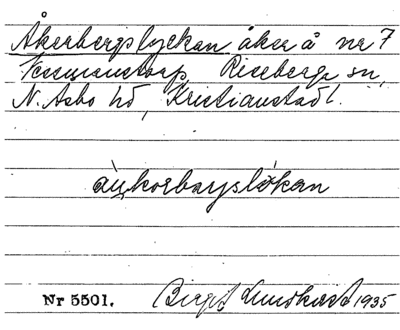 Åkerbergslyckan åker å nr 7
Vessmantorp, Riseberga sn,
N. Åsbo hd, Kristianstads l.
åụkorbaryslökan
Nr 5501. Birgit Lundkvist 1935